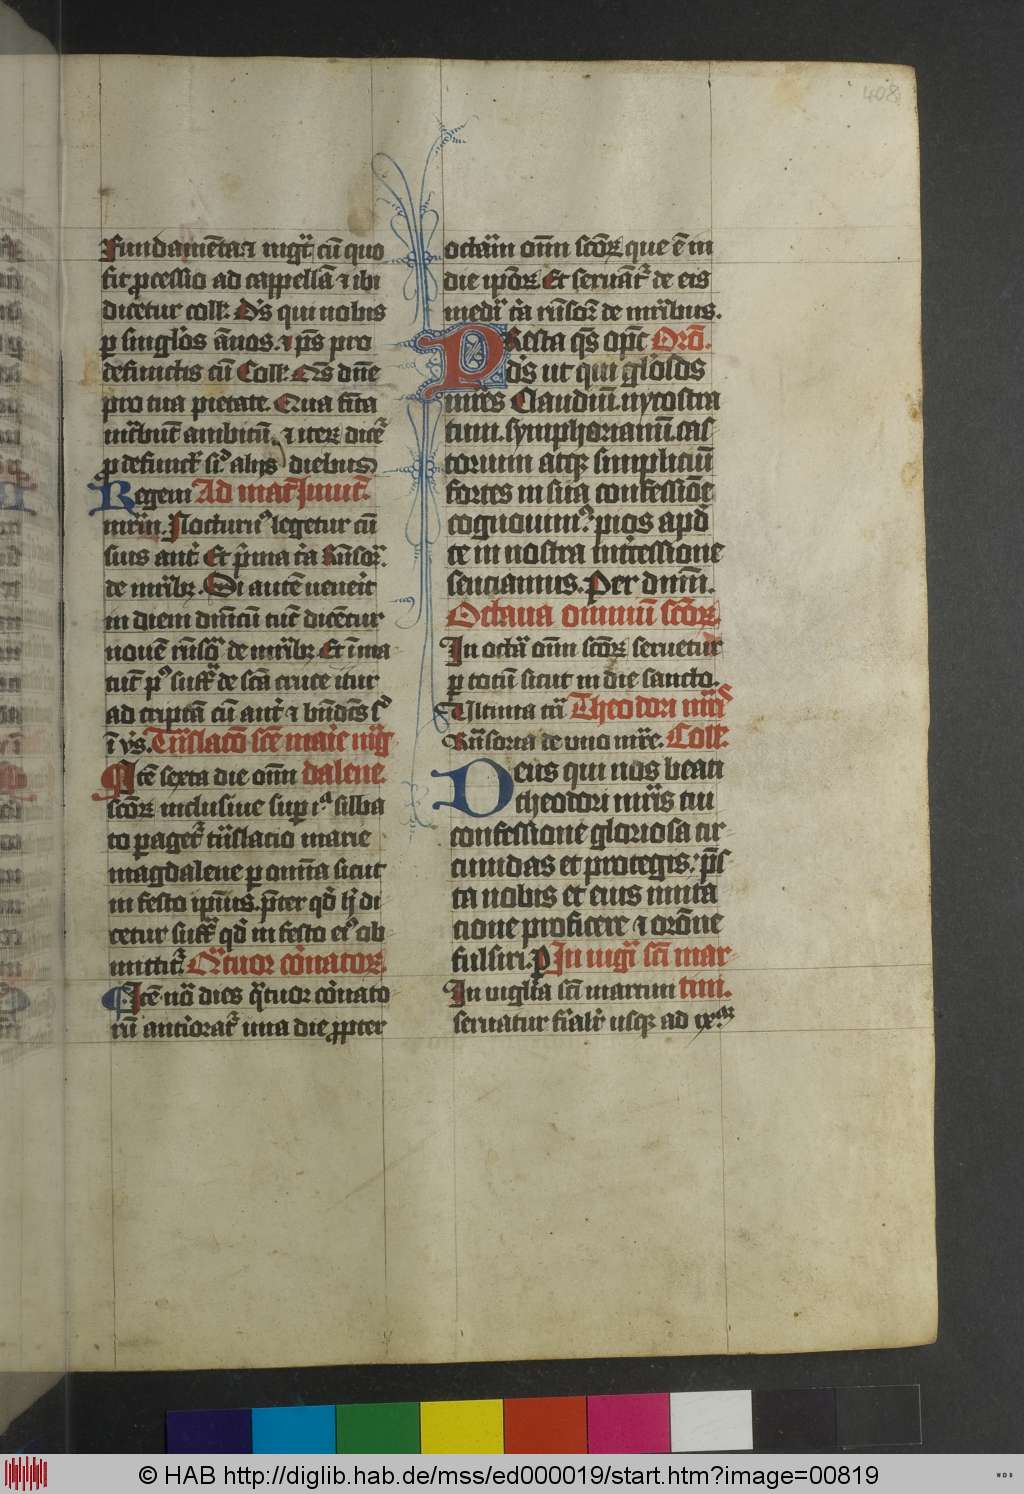 408
Fundamēta⁊ migͣt cū quo
fit ꝓcessio ad cappellā ⁊ ibi
dicetur coll̄. Ds̄ qui nobis
ꝑ singl̓os ānos. ⁊ p̄s pro
defunctis cū Coll̄. Om̄s dn̄e
pro tua pietate. Qua
ambitū. ⁊ iterꝫ dicet̄
ꝓ defunct̄ sic̄ alijs diebus
Regem Ad mat̄ Jnuit̄.
mr̄m. Nocturnꝰ legetur cū
suis ant̄. Et p̄ma
de mr̄ibꝫ. Si autē uenerit
in diem dn̄icū tūc dicētur
nouē de mr̄ibꝫ. Et
tut̄ pꝰ suffͣ de scā cruce itur
ad criptā cū ant̄ ⁊
ī v̓s. Trn̄slacō scē maīe mg̅
Jtē sexta die om̄ dalene.
scōꝝ inclusiue sabba
to ꝑaget̄ trn̄slacio marie
magdalene ꝑ om̄ia sicut
in festo ip̄ius. p̄ter qd̓ di
cetur suffͣ qd̓ in festo eiꝰ ob
mittit̄. Qͣtuor cōnatoꝝ.
Jtē nō dies qͣtuor cōnato
rū antiorat̄ una die ꝓpter
octauā om̄ scōꝝ que ē in
die ipōꝝ Et seruāt̄ de eis
medīͣ de mr̄ibus.
PResta qs̄ opc̄ Orō.
ds̄ ut qui gl̓osos
mr̄es Claudiū. nycostra
tum. symphorianū. cas
torium atqꝫ simpliciū
fortes in sua confessiōe
cognouimꝰ. pios apd̓
te in nostra int̄cessione
senciamus. Per dn̄m.
Octaua omniū scōꝝ.
Jn octͣ om̄ scōꝝ seruetur
ꝑ totū sicut in die sancto.
Vltima Theodori mr̄is
de uno mr̄e. Coll̄.
Deus qui nos beati
theodori mr̄is tui
confessione gloriosa cir
cumdas et protegis. p̄s
ta nobis et eius imita
cione proficere ⁊ orōne
fulciri. P Jn uigīͣ scī mar
Jn uigl̓ia scī martini tini.
seruatur usqꝫ ad ixͣᵐ
© HAB http://diglib.hab.de/mss/ed000019/start.htm?image=00819